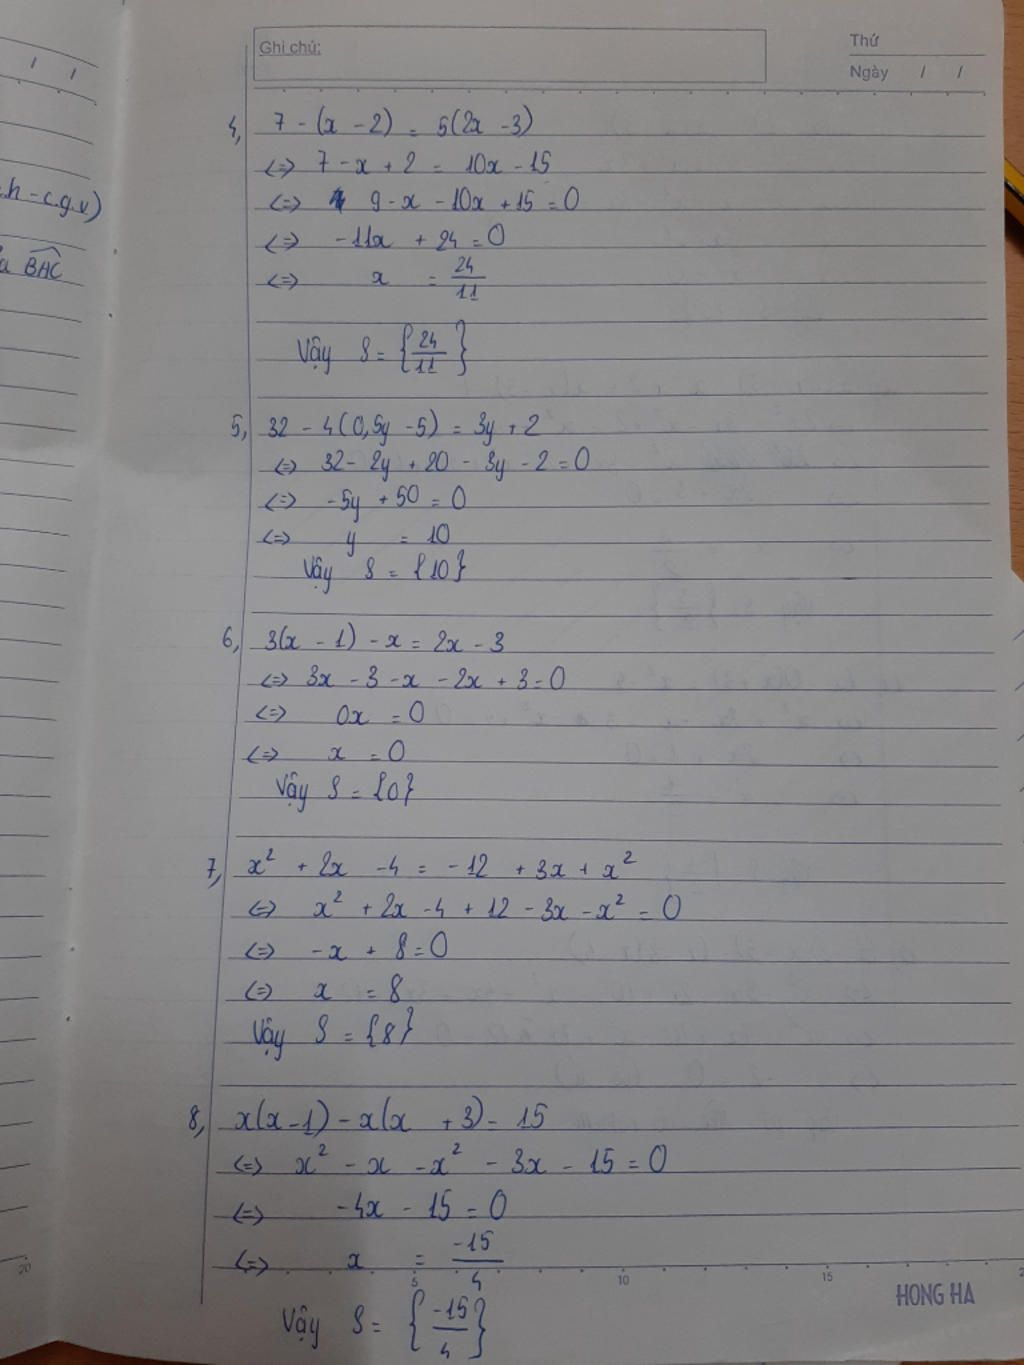 Ghi chú:
Thứ
Ngày / /
/ /
4, 7 - (x - 2) = 5(2x - 3)
<=> 7 - x + 2 = 10x - 15
<=> 9 - x - 10x + 15 = 0
<=> -11x + 24 = 0
<=> x = 24/11
Vậy S = {24/11}
5, 32 - 4(0,5y - 5) = 3y + 2
<=> 32 - 2y + 20 - 3y - 2 = 0
<=> -5y + 50 = 0
<=> y = 10
Vậy S = {10}
6, 3(x - 1) - x = 2x - 3
<=> 3x - 3 - x - 2x + 3 = 0
<=> 0x = 0
<=> x = 0
Vậy S = {0}
7, x² + 2x - 4 = -12 + 3x + x²
<=> x² + 2x - 4 + 12 - 3x - x² = 0
<=> -x + 8 = 0
<=> x = 8
Vậy S = {8}
8, x(x - 1) - x(x + 3) = 15
<=> x² - x - x² - 3x - 15 = 0
<=> -4x - 15 = 0
<=> x = -15/4
Vậy S = {-15/4}
.h - c.g.v)
BAC
20
5 10 15
HONG HA